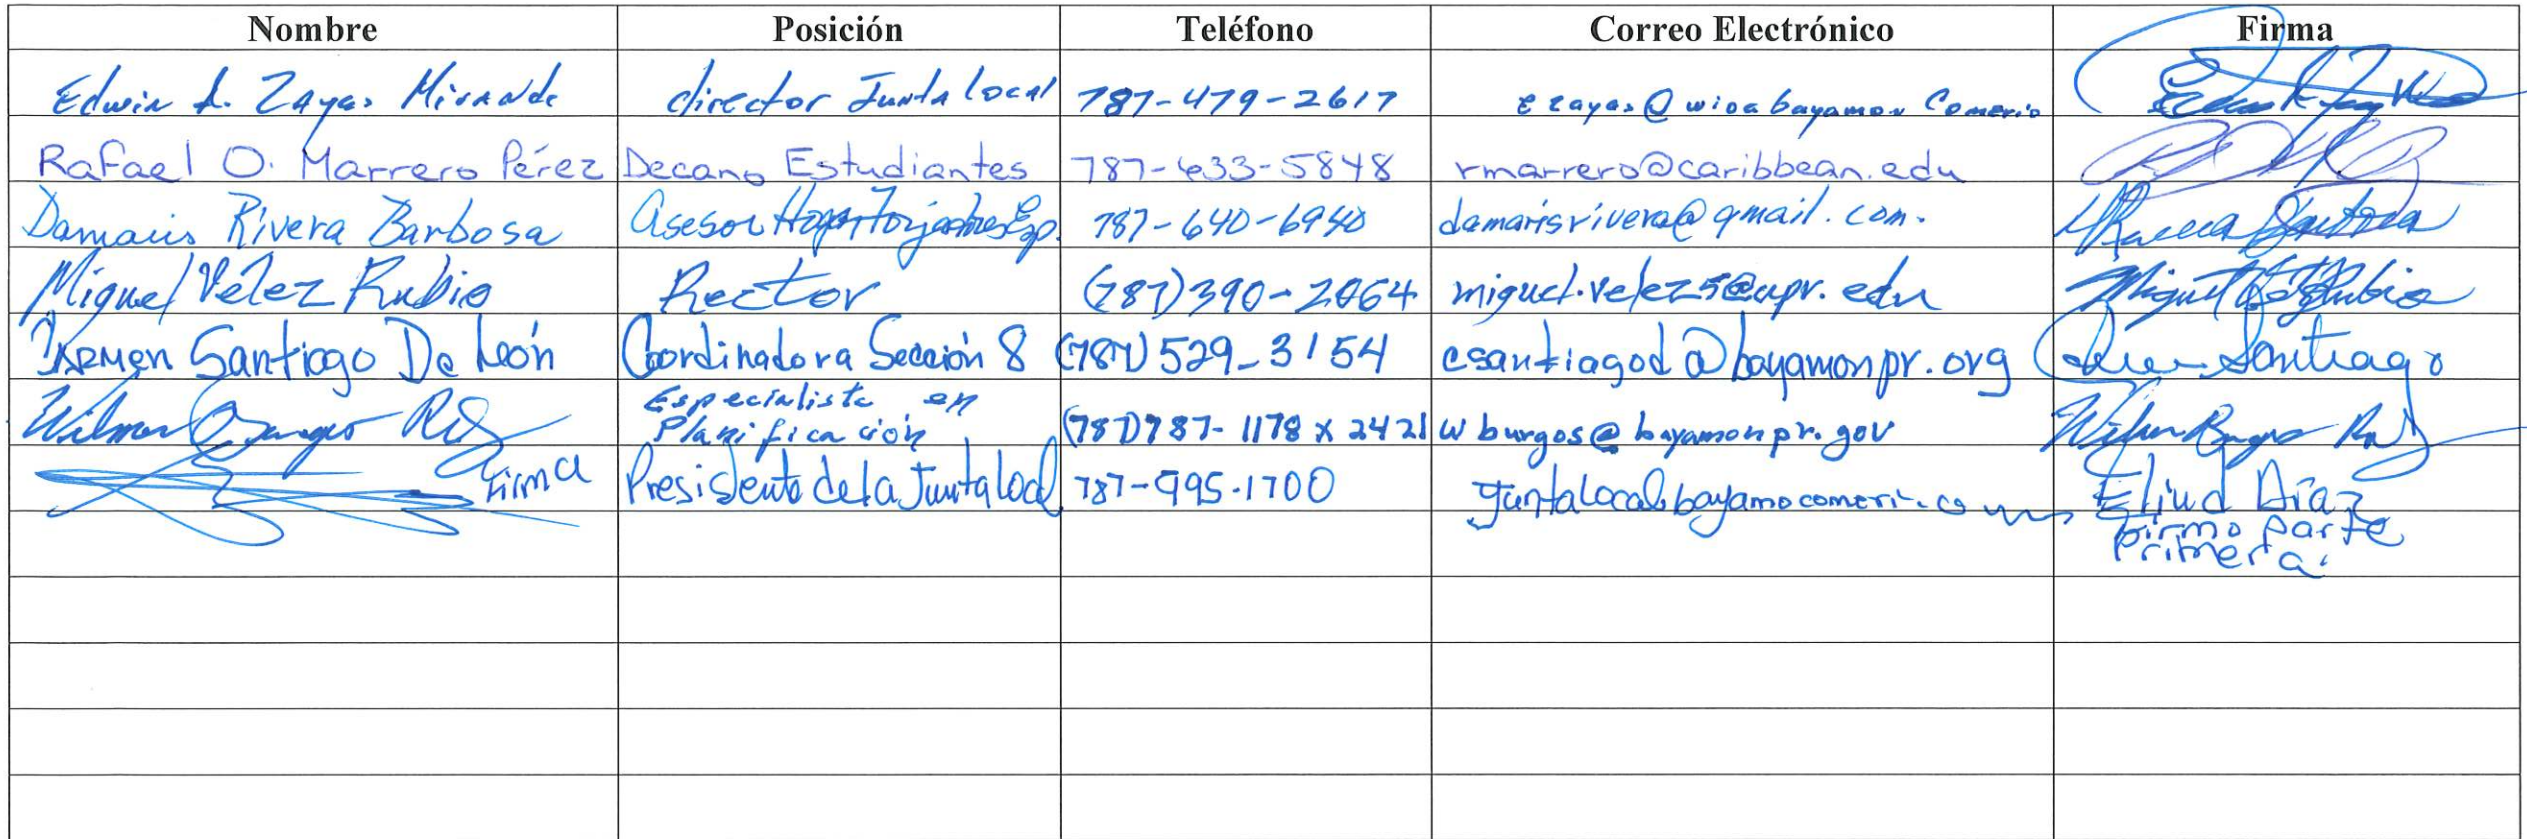 Nombre Posición Teléfono Correo Electrónico Firma
Edwin A. Zayas Miranda director Junta Local 787-479-2617 ezayas@wioabayamon Comerio
Rafael O. Marrero Pérez Decano Estudiantes 787-633-5848 rmarrero@caribbean.edu
Damaris Rivera Barbosa Asesor 787-640-6940 damarisrivera@gmail.com. Rivera Barbosa
Miguel Vélez Rubio Rector (787)390-2064 miguel.velez5@upr.edu Miguel Vélez Rubio
Carmen Santiago De León Coordinadora Sección 8 (787) 529-3154 csantiagod@bayamonpr.org Santiago
Wilmer Burgos Especialista en
Planificación (787)787-1178 x 2421 wburgos@bayamonpr.gov Wilmer Burgos
Firma Presidente de la Junta Local 787-995-1700 Eliud Díaz
firmo parte
primera.